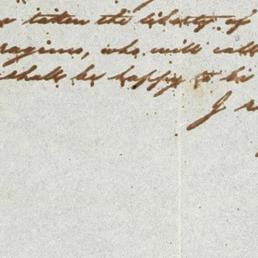 taken the liberty of
who will call
shall be happy to
J